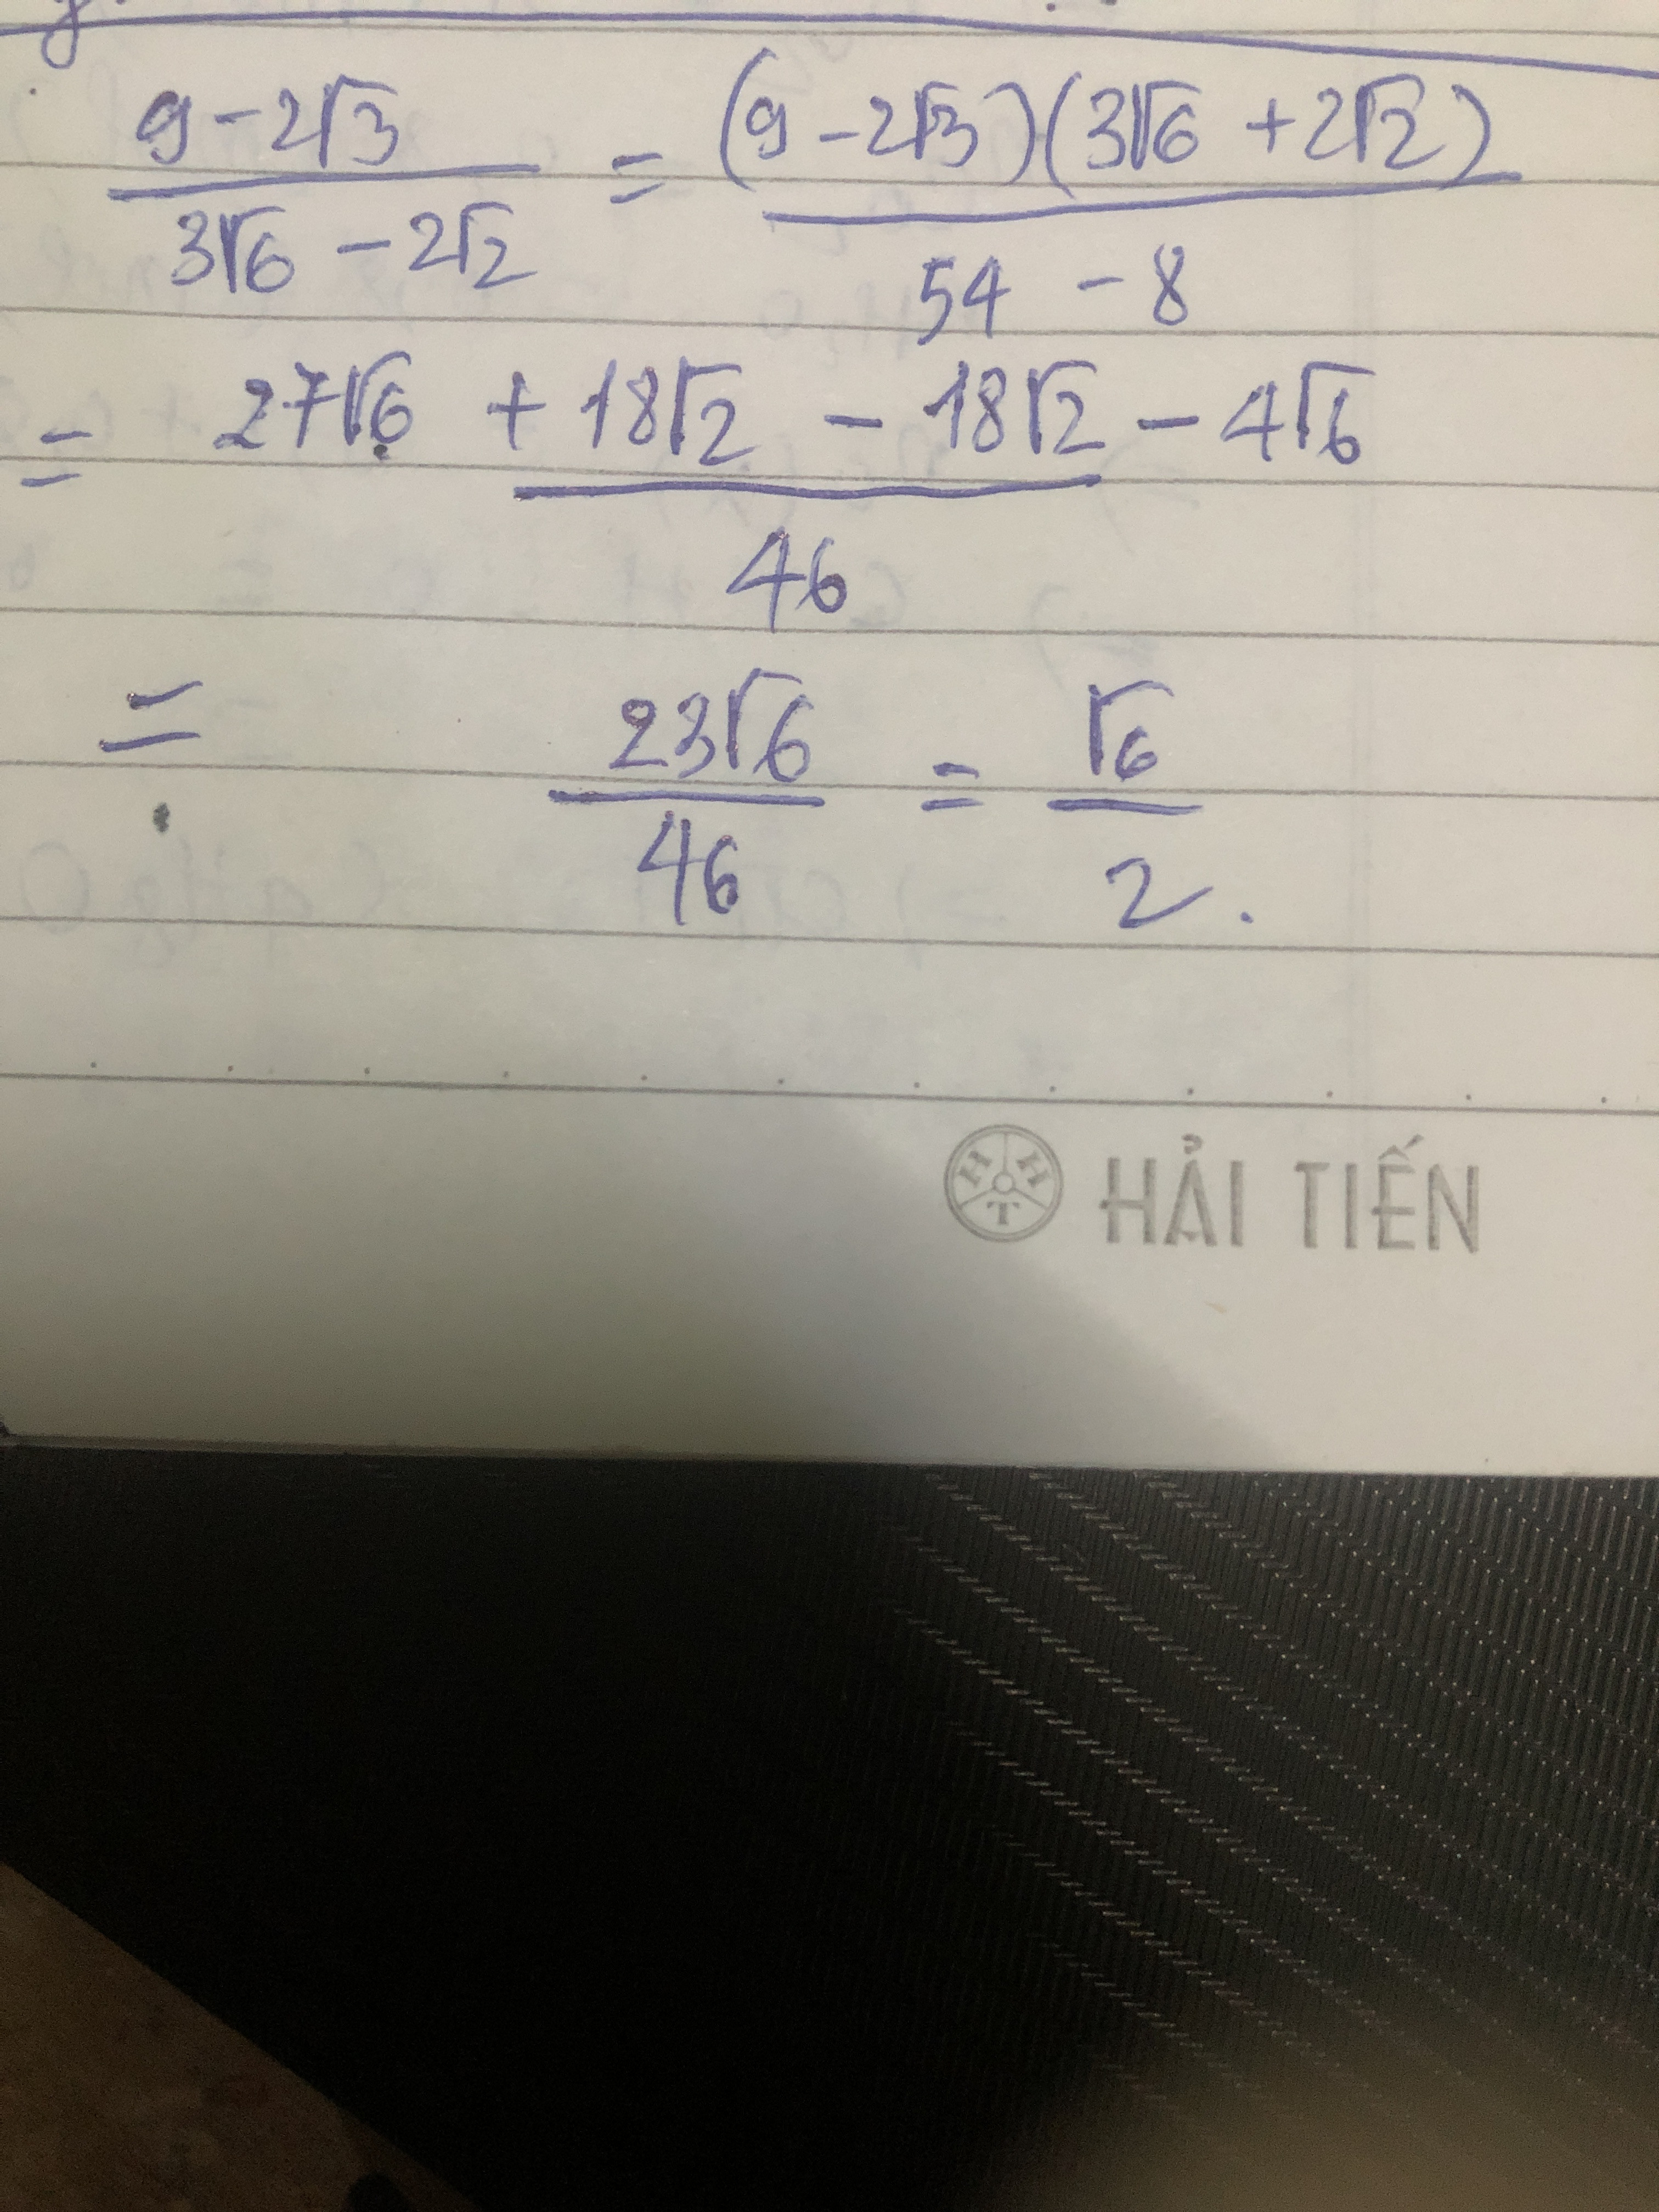 (9-2√3)/(3√6 -2√2) = ((9-2√3)(3√6 +2√2))/(54 - 8)
= (27√6 + 18√2 - 18√2 - 4√6)/46
= 23√6/46 = √6/2.
HHT HẢI TIẾN